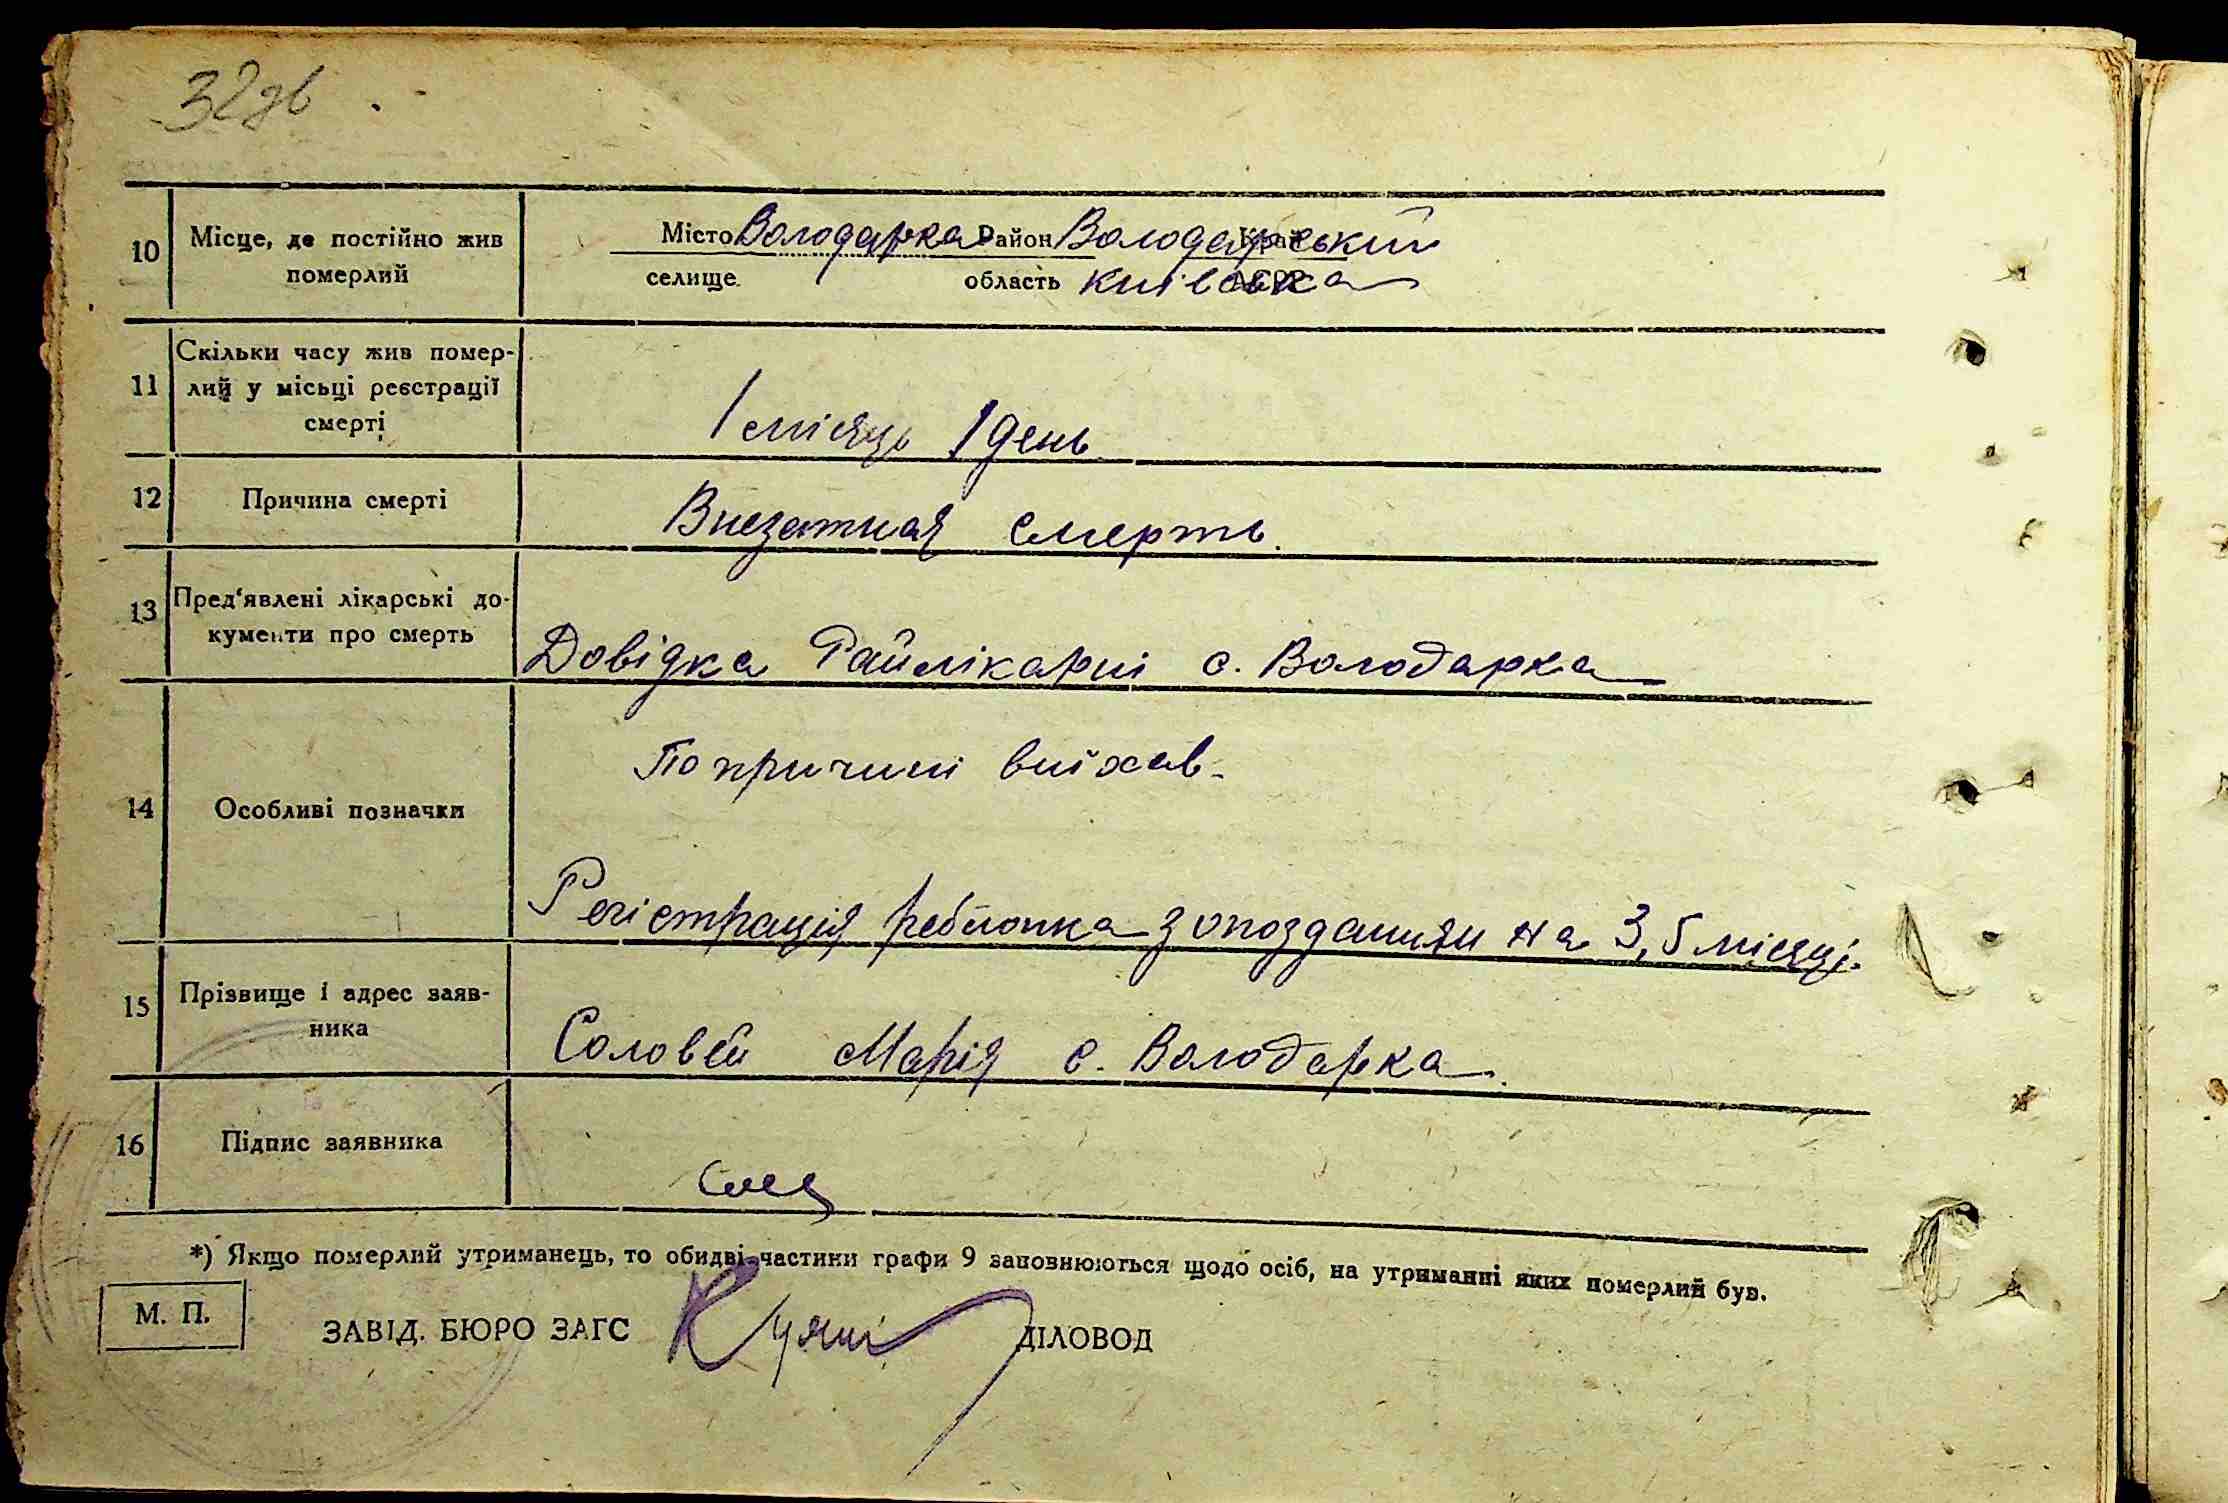 32зв
10 Місце, де постійно жив померлий Місто Володарка Район Володарський Край
селище область Київська АСРР
11 Скільки часу жив помер-
лий у місьці реєстрації
смерті 1 місяць 1 день
12 Причина смерті Внезатная смерть.
13 Пред'явлені лікарські до-
кументи про смерть Довідка Райлікарні с. Володарка
По причині виїхав.
14 Особливі позначки
Регістрація ребйонка з опозданням на 3,5 місяці.
15 Прізвище і адрес заяв-
ника Соловей Марія с. Володарка.
16 Підпис заявника
*) Якщо померлий утриманець, то обидві частини графи 9 заповнюються щодо осіб, на утриманні яких померлий був.
М. П.
ЗАВІД. БЮРО ЗАГС ДІЛОВОД